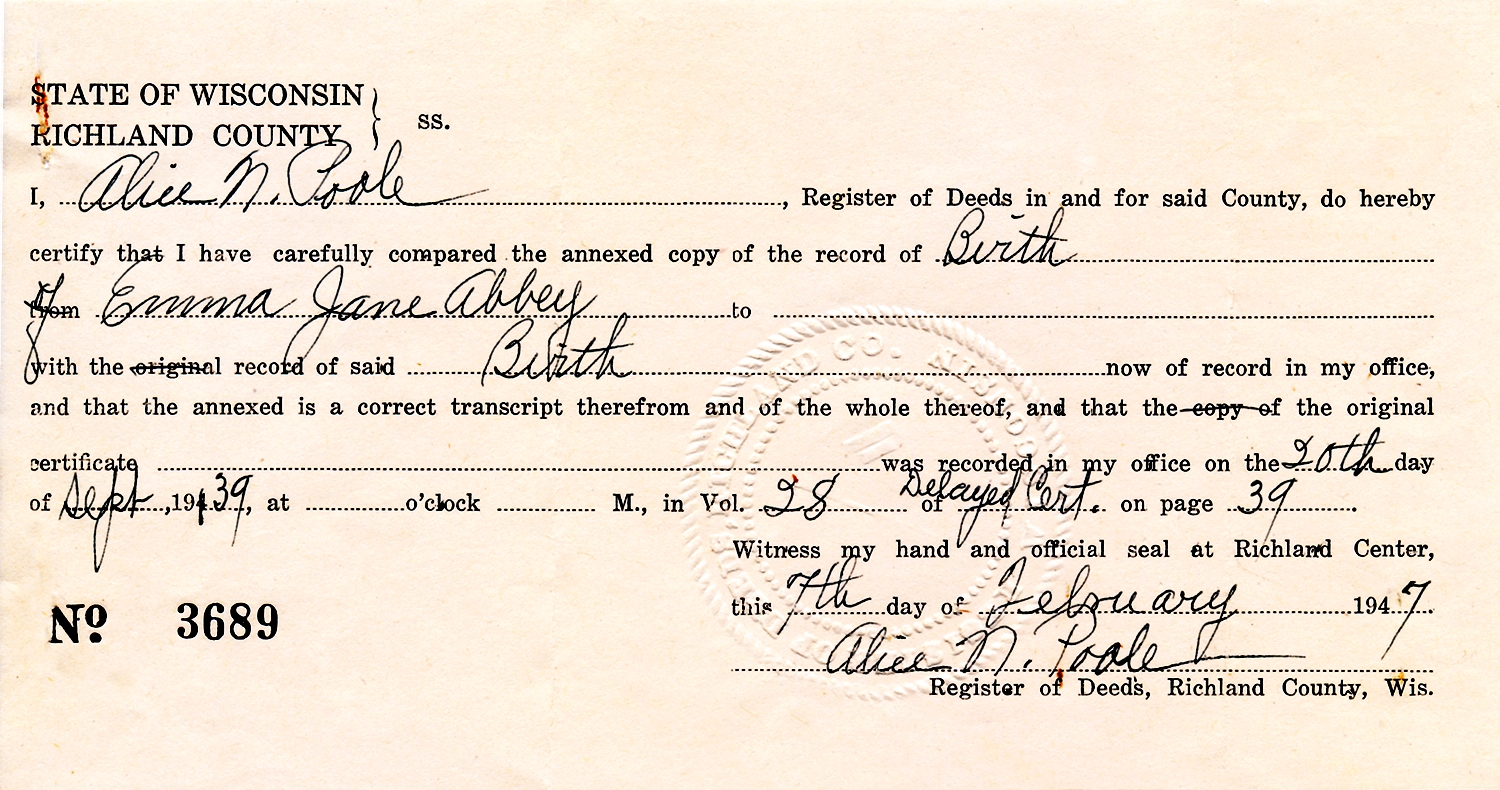 STATE OF WISCONSIN
RICHLAND COUNTY } ss.
I, Alice N. Poole, Register of Deeds in and for said County, do hereby
certify that I have carefully compared the annexed copy of the record of Birth
from of Emma Jane Abbey to
with the original record of said Birth now of record in my office,
and that the annexed is a correct transcript therefrom and of the whole thereof, and that the copy of the original
certificate was recorded in my office on the 20th day
of Sept., 194 39, at o'clock M., in Vol. 28 of Delayed Cert. on page 39.
Witness my hand and official seal at Richland Center,
this 7th day of February 1947.
Alice N. Poole
Register of Deeds, Richland County, Wis.
No 3689
RICHLAND CO.